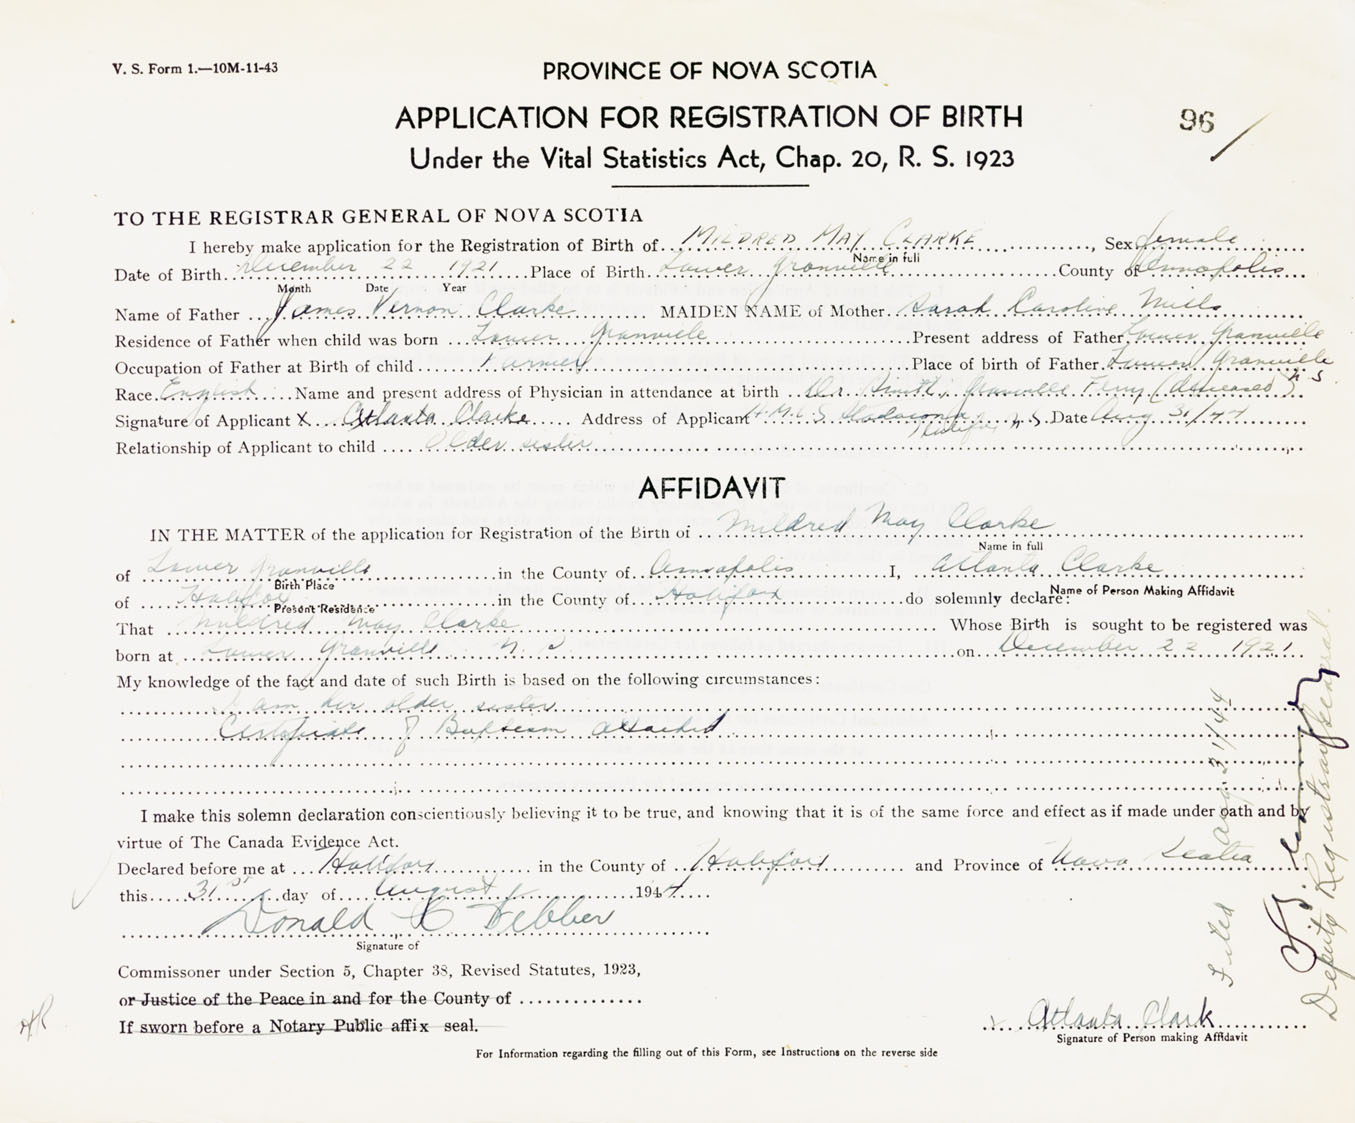 V. S. Form 1.—10M-11-43
PROVINCE OF NOVA SCOTIA
APPLICATION FOR REGISTRATION OF BIRTH
96
Under the Vital Statistics Act, Chap. 20, R. S. 1923
TO THE REGISTRAR GENERAL OF NOVA SCOTIA
I hereby make application for the Registration of Birth of MILDRED MAY CLARKE, Sex female
Name in full
Date of Birth December 22 1921 Place of Birth Lower Granville County of Annapolis
Month Date Year
Name of Father James Vernon Clarke MAIDEN NAME of Mother Sarah Caroline Mills
Residence of Father when child was born Lower Granville Present address of Father Lower Granville
Occupation of Father at Birth of child Farmer Place of birth of Father Lower Granville N S
Race English Name and present address of Physician in attendance at birth Dr. Smith, Granville Ferry (deceased)
Signature of Applicant X Atlanta Clarke Address of Applicant H.M.C.S. Stadacona, Halifax N S Date Aug 31/44
Relationship of Applicant to child Older sister
AFFIDAVIT
IN THE MATTER of the application for Registration of the Birth of Mildred May Clarke
Name in full
of Lower Granville in the County of Annapolis I, Atlanta Clarke
Birth Place
Name of Person Making Affidavit
of Halifax in the County of Halifax do solemnly declare:
Present Residence
That Mildred May Clarke Whose Birth is sought to be registered was
born at Lower Granville N. S. on December 22 1921
My knowledge of the fact and date of such Birth is based on the following circumstances:
I am her older sister
Certificate of Baptism attached
I make this solemn declaration conscientiously believing it to be true, and knowing that it is of the same force and effect as if made under oath and by
virtue of The Canada Evidence Act.
Declared before me at Halifax in the County of Halifax and Province of Nova Scotia
this 31st day of August 1944
Donald C Webber
Signature of
Commissoner under Section 5, Chapter 38, Revised Statutes, 1923,
or Justice of the Peace in and for the County of
If sworn before a Notary Public affix seal.
Atlanta Clark
Signature of Person making Affidavit
For Information regarding the filling out of this Form, see Instructions on the reverse side
Filed Aug. 31/44
Deputy Registrar General